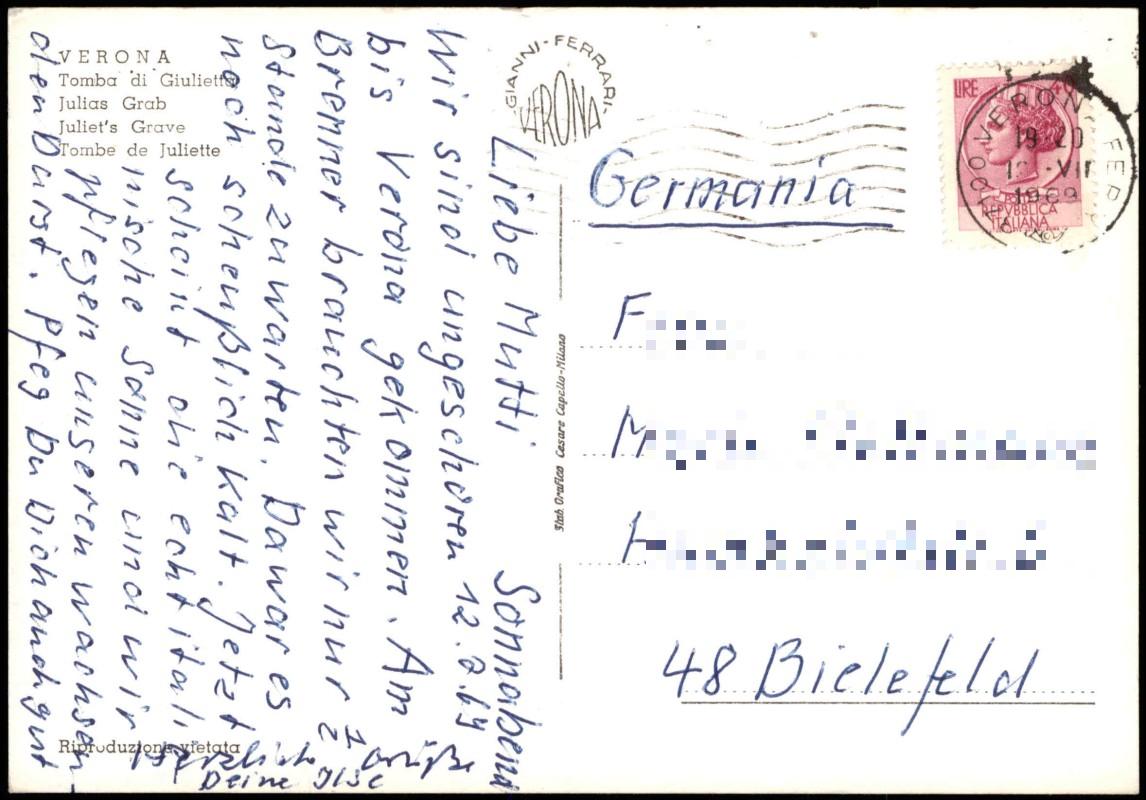 VERONA
Tomba di Giulietta
Julias Grab
Juliet's Grave
Tombe de Juliette
Liebe Mutti Sonnabend
Wir sind ungeschoren 12.7.69
bis Verona gekommen. Am
Brenner brauchten wir nur 1/2
Stunde zu warten. Da war es
noch scheußlich kalt. Jetzt
scheint die echt itali
nische Sonne und wir
pflegen unseren wachsen-
den Durst. Pfeg Du Dich auch gut
Herzliche Grüße
Deine Ilse
Riproduzione vietata
GIANNI-FERRARI-
VERONA
Stab. Grafico Cesare Capello-Milano
LIRE 40
REPVBBLICA
ITALIANA
VERONA FER
19-20
VII
1969
Germania
F
M
48 Bielefeld